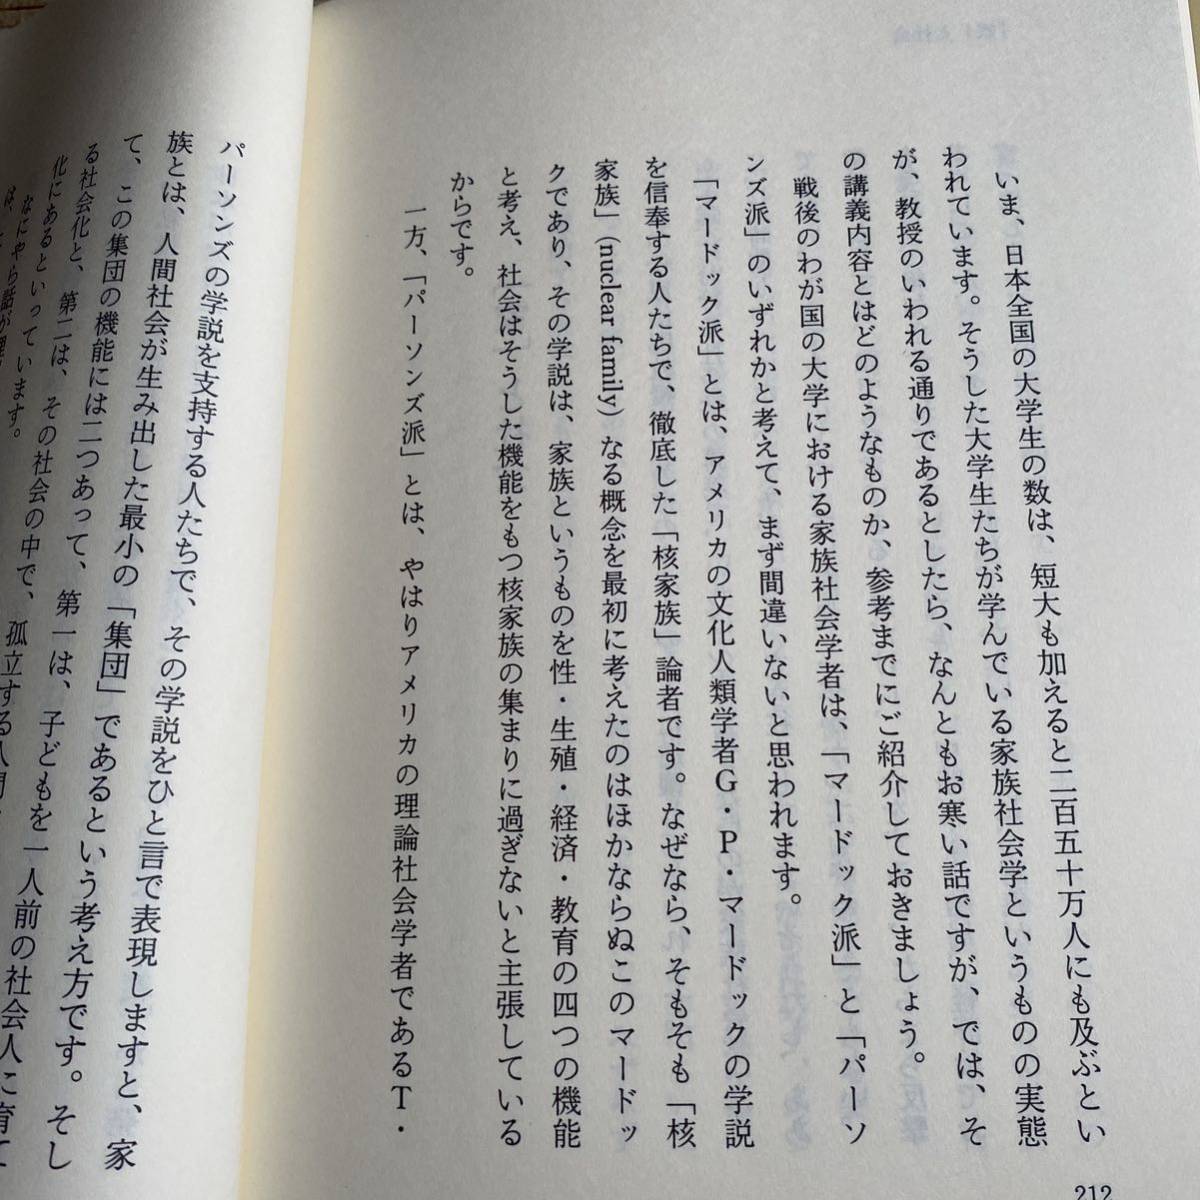 いま、日本全国の大学生の数は、短大も加えると二百五十万人にも及ぶとい
われています。そうした大学生たちが学んでいる家族社会学というものの実態
が、教授のいわれる通りであるとしたら、なんともお寒い話ですが、では、そ
の講義内容とはどのようなものか、参考までにご紹介しておきましょう。
戦後のわが国の大学における家族社会学者は、「マードック派」と「パーソ
ンズ派」のいずれかと考えて、まず間違いないと思われます。
「マードック派」とは、アメリカの文化人類学者G・P・マードックの学説
を信奉する人たちで、徹底した「核家族」論者です。なぜなら、そもそも「核
家族」(nuclear family)なる概念を最初に考えたのはほかならぬこのマードッ
クであり、その学説は、家族というものを性・生殖・経済・教育の四つの機能
と考え、社会はそうした機能をもつ核家族の集まりに過ぎないと主張している
からです。
一方、「パーソンズ派」とは、やはりアメリカの理論社会学者であるT・
212
パーソンズの学説を支持する人たちで、その学説をひと言で表現しますと、家
族とは、人間社会が生み出した最小の「集団」であるという考え方です。そし
て、この集団の機能には二つあって、第一は、子どもを一人前の社会人に育て
る社会化と、第二は、その社会の中で、孤立する人間
化にあるといっています。
なにやら話が